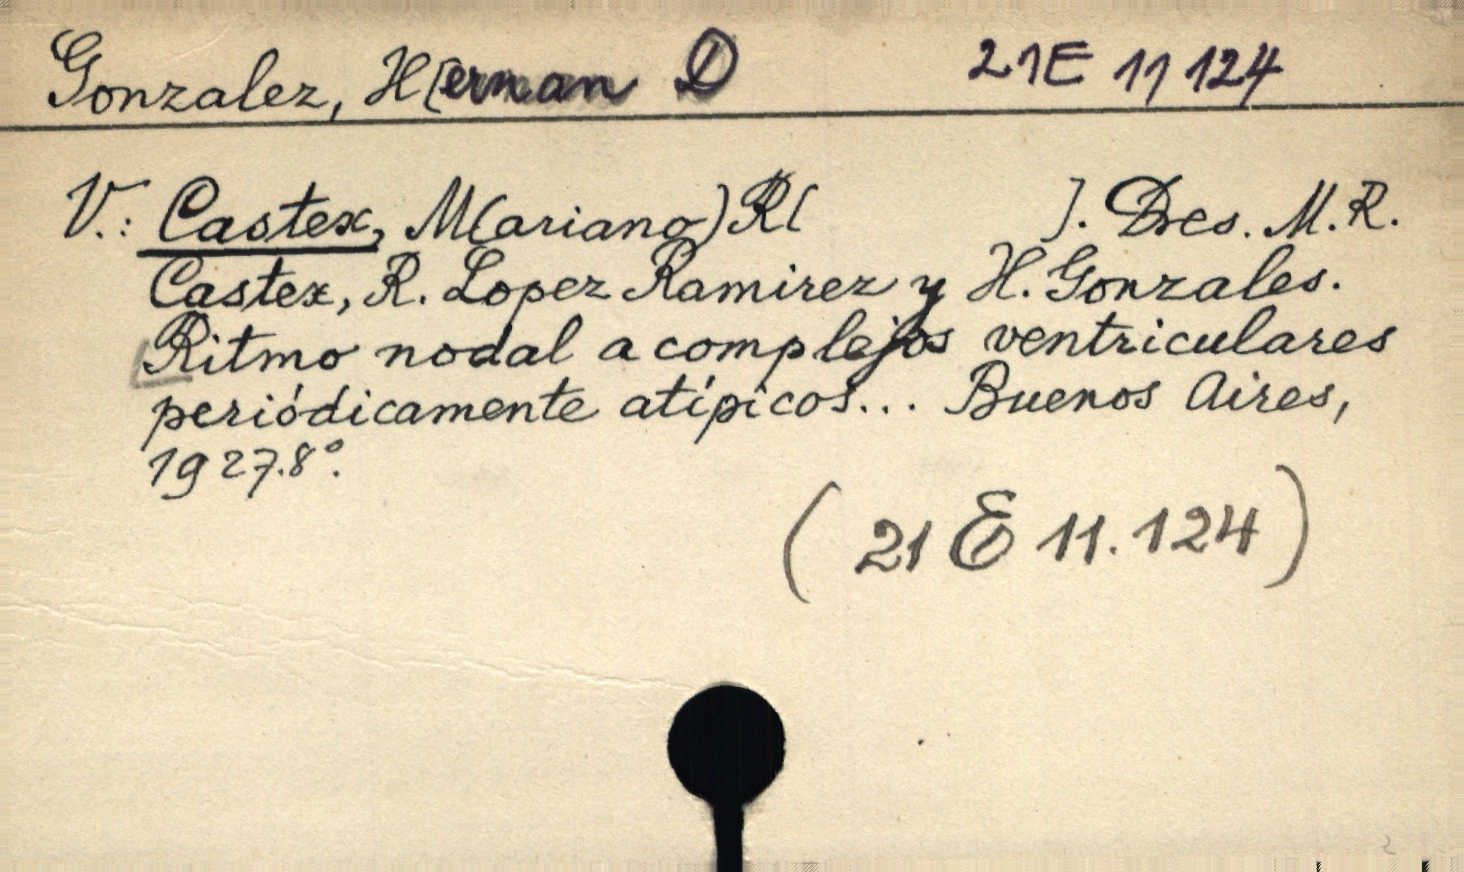 Gonzalez, H[ernan D 21E 11 124
V.: Castex, M(ariano) R[ ]. Dres. M.R.
Castex, R. Lopez Ramirez y H. Gonzales.
Ritmo nodal a complejos ventriculares
periódicamente atípicos... Buenos Aires,
1927.8°.
(21 E 11.124)
2